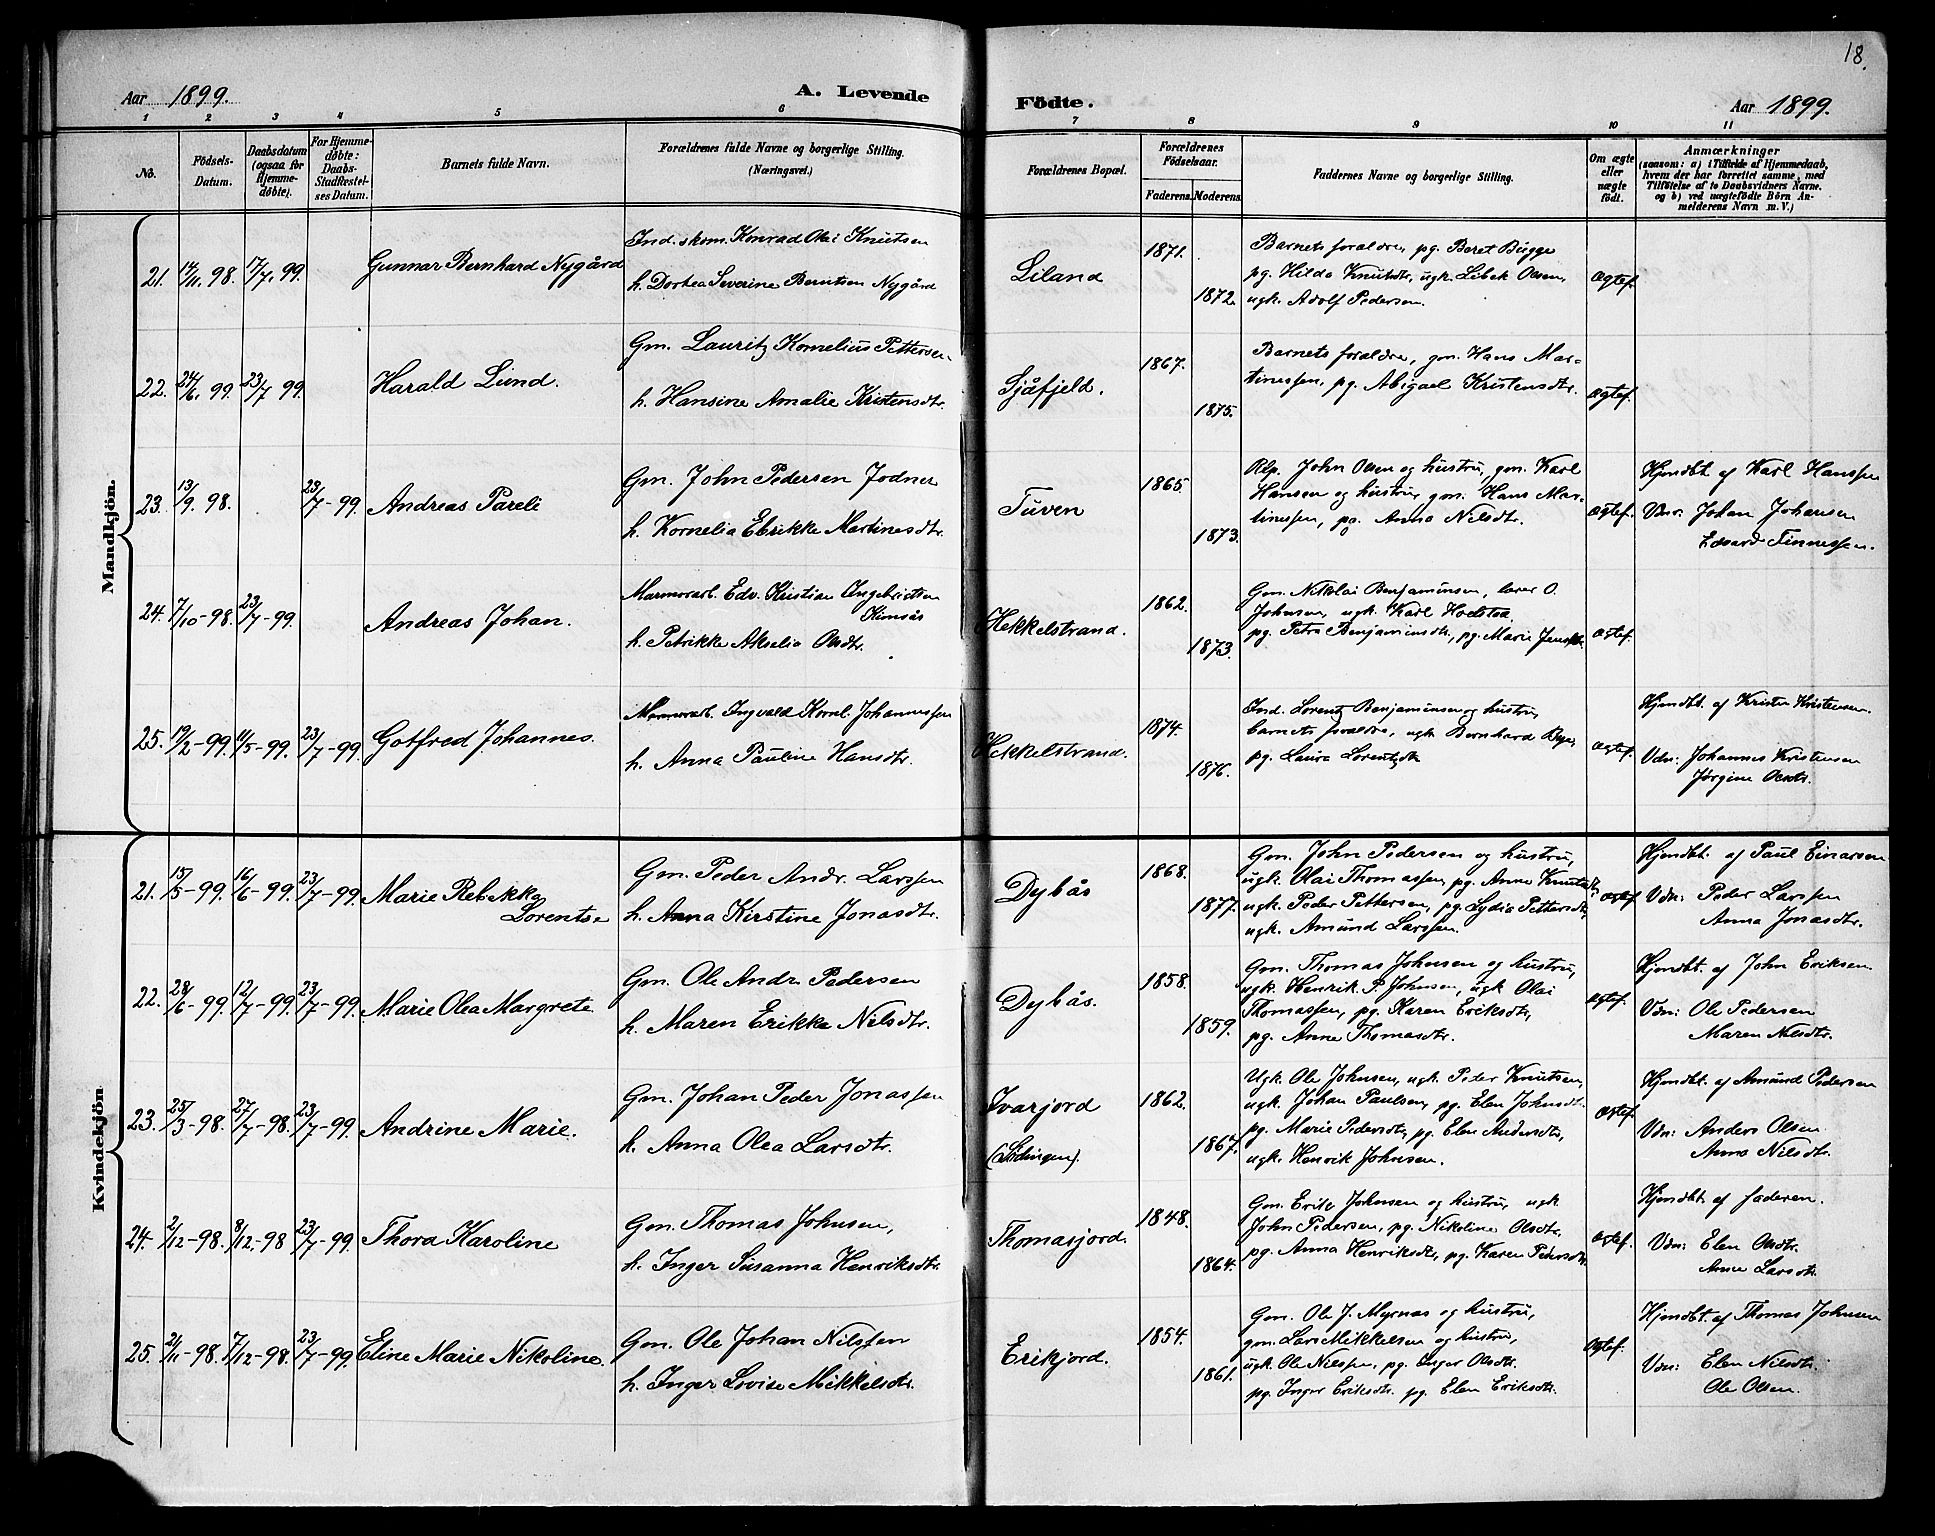 18.
Aar 1899. A. Levende Födte. Aar 1899.
1 2 3 4 5 6 7 8 9 10 11
No.
Födsels-
Datum.
Daabsdatum
(ogsaa for
Hjemme-
døbte).
For Hjemme-
døbte:
Daabs-
Stadfæstel-
ses Datum.
Barnets fulde Navn.
Forældrenes fulde Navne og borgerlige Stilling.
(Næringsvei.)
Forældrenes Bopæl.
Forældrenes
Födselsaar.
Faderens. Moderens.
Faddernes Navne og borgerlige Stilling.
Om ægte
eller
uægte
født.
Anmærkninger
(saasom: a) i Tilfælde af Hjemmedaab,
hvem der har forrettet samme, med
Tilføielse af to Daabsvidners Navne.
og b) ved uægtefødte Börn An-
melderens Navn m. V.)
Mandkjön.
21. 14/11 98. 17/7 99. Gunnar Bernhard Nygård
Ind. skom. Konrad Olai Knutsen
h. Dortea Severine Berntsen Nygård
Liland
1871.
1872.
Barnets foraldre, pg. Beret Bugge
pg. Hilda Knutsdtr, ugk. Libek Olsen,
ugk. Adolf Pedersen.
Ægtef.
22. 24/6 99. 23/7 99. Harald Lund.
Gm. Lauritz Kornelius Pettersen
h. Hansine Amalie Kristensdtr.
Sjåfjeld.
1867.
1875.
Barnets foraldre, gm. Hans Mar-
tinussen, pg. Abigael Kristensdtr.
Ægtef.
23. 13/9 98. 23/7-99. Andreas Pareli
Gm. John Pedersen Jodner
h. Kornelia Ebrikke Martinesdtr.
Tuven
1865.
1873.
Rlp. John Olsen og hustru, gm. Karl
Hansen og hustru, gm. Hans Mar-
tinessen, pg. Anna Nilsdtr.
Ægtef.
Hjmdbt. af Karl Hanssen
Vdnr. Johan Johansen
Edvard Finnessen.
24. 7/10-98. 23/7-99. Andreas Johan.
Marmorarb. Edv. Kristian Ingebrigtsen
Kimsås
h. Petrikke Akselia Olsdtr.
Hekkelstrand.
1862.
1873.
Gm. Nikolai Benjaminsen, lærer O.
Johnsen, ugk. Karl Holstea
pg. Petra Benjaminsdtr., pg. Marie Jensdtr.
Ægtef.
25. 19/2-99. 11/5-99. 23/7-99. Gotfred Johannes.
Marmorarb. Ingvald Kornl. Johannessen
h. Anna Pauline Hansdtr.
Hekkelstrand.
1874.
1876.
Ind. Lorentz Benjaminsen og hustru,
barnets foraldre, ugk. Bernhard
pg. Laura Lorentsdtr
Ægtef.
Hjmdbt. af Kristen Kristensen.
Vdn: Johannes Kristensen
Jørgine Olsdtr.
Kvindekjön
21. 15/5-99. 16/6-99. 23/7-99. Marie Rebekka
Lorentse
Gm. Peder Andr. Larssen
h. Anna Kirstine Jonasdtr.
Dybås
1868.
1877.
Gm. John Pedersen og hustru,
ugk. Olai Thomassen, pg. Anne Knutsdtr.
ugk. Peder Pettersen, pg. Lydia Pettersdtr,
ugk. Amund Larssen.
Ægtef.
Hjmdbt. af Paul Einarsen
Vdn: Peder Larssen
Anna Jonasdtr.
22. 28/6-99. 12/7-99. 23/7-99. Marie Olea Margrete
Gm. Ole Andr. Pedersen
h. Maren Erikke Nilsdtr.
Dybås.
1858.
1859.
Gm. Thomas Johnsen og hustru,
ugk. Henrik P. Johnsen, ugk Olai
Thomassen, pg. Karen Eriksdtr,
pg. Anne Thomasdtr.
Ægtef.
Hjmdbt. af John Eriksen.
Vdn: Ole Pedersen
Maren Nilsdtr.
23. 25/3-98. 27/7-98. 23/7-99. Andrine Marie.
Gm. Johan Peder Jonassen
h. Anna Olea Larsdtr.
Ivarjord
(Lødingen).
1862.
1867.
Ugk. Ole Johnsen, ugk. Peder Knutsen,
ugk. Johan Paulsen, pg. Elen Johnsdtr.
pg. Marie Pedersdtr, pg. Elen Andersdtr,
ugk. Henrik Johnsen.
Ægtef.
Hjmdbt. af Amund Pedersen
Vdn: Anders Olsen
Anna Nilsdtr.
24. 2/12-98. 8/12-98 23/7-99. Thora Karoline
Gm. Thomas Johnsen,
h. Inger Susanna Henriksdtr.
Thomasjord.
1848.
1864.
Gm. Erik Johnsen og hustru, ugk
John Pedersen, pg. Nikoline Olsdtr,
pg. Anna Henriksdtr, pg. Karen Pedersdtr.
Ægtef.
Hjmdbt. af faderen.
Vdn: Elen Olsdtr.
Anne Larsdtr.
25. 2/11-98. 7/12-98. 23/7-99. Eline Marie Nikoline.
Gm. Ole Johan Nilssen
h. Inger Lovise Mikkelsdtr.
Erikjord.
1854.
1861.
Gm. Ole J. Myrnas og hustru,
gm. Lars Mikkelsen og hustru,
ugk. Ole Nielsen, pg. Inger Olsdtr.
pg. Inger Eriksdtr. pg. Elen Eriksdtr.
Ægtef.
Hjmdbt. af Thomas Johnsen
Vdn: Elen Nilsdtr.
Ole Olsen.